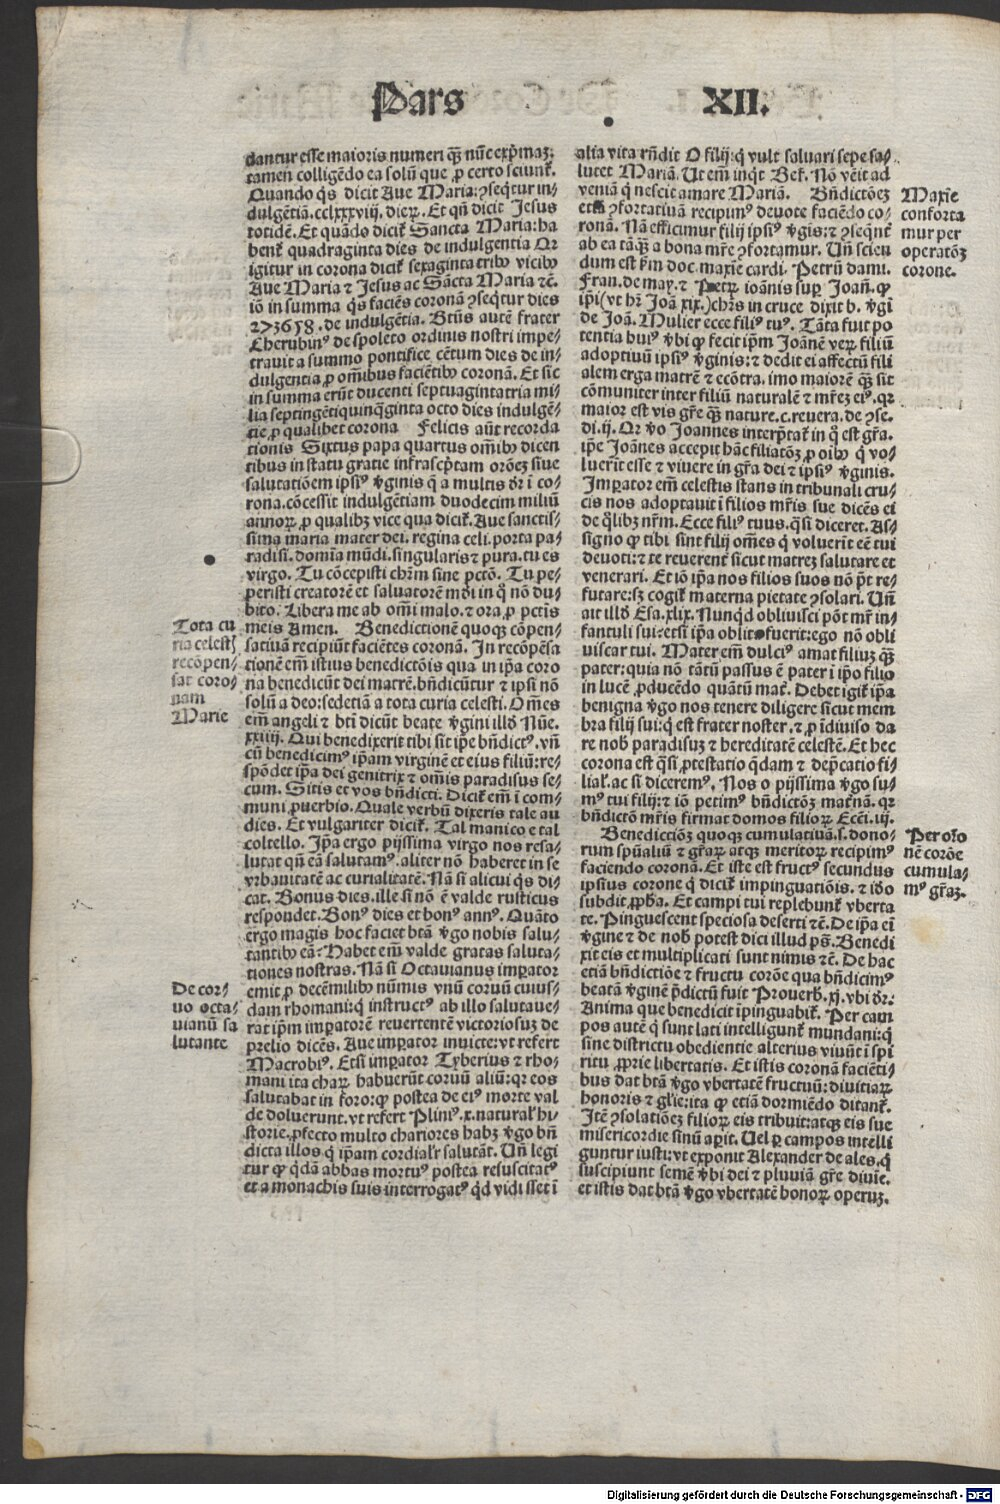 Pars XII.
dantur esse maioris numeri qȝ nūc exp̄maȝ:
tamen colligēdo ea solū que ꝓ certo sciunt̄.
Quando q̇s dicit Aue Maria: ꝯseq̄tur in⸗
dulgētiā. cclxxxviij. dierꝝ. Et qn̄ dicit Jesus
totidē. Et quādo dicit̄ Sancta Maria: ha
bent̄ quadraginta dies de indulgentia Qr
igitur in corona dicit̄ sexaginta tribꝰ vicibꝰ
Aue Maria ⁊ Jesus ac Sācta Maria ⁊c̄.
iō in summa q̇s faciēs coronā ꝯseq̄tur dies
273658. de indulgētia. Btūs autē frater
Cherubinꝰ de spoleto ordinis nostri impe⸗
trauit a summo pontifice cētum dies de in⸗
dulgentia ꝓ om̄ibus faciētibꝰ coronā. Et sic
in summa erūt ducenti septuagintatria mi⸗
lia septingētiquinq̄ginta octo dies indulgē⸗
tie ꝓ qualibet corona Felicis aūt recorda
tionis Sixtus papa quartus om̄ibꝰ dicen
tibus in statu gratie infrascp̄tam orōeȝ siue
salutatiōem ipsiꝰ ꝟginis q̄ a multis dr̄ ī co⸗
rona. cōcessit indulgētiam duodecim miliū
annoꝝ. ꝓ qualibȝ vice qua dicit̄. Aue sanctis⸗
sima maria mater dei. regina celi. porta pa⸗
radisi. domīa mūdi. singularis ⁊ pura. tu es
virgo. Tu cōcepisti chr̄m sine pctō. Tu pe⸗
peristi creatorē et saluatorē mōi in q̊ nō du⸗
bito. Libera me ab om̄i malo. ⁊ ora ꝓ pctīs
meis Amen. Benedictionē quoqȝ cōpen⸗
satiuā recipiūt faciētes coronā. In recōpēsa
tionē em̄ istius benedictōis qua in ip̄a coro
na benedicūt dei matrē. bn̄dicūtur ⁊ ipsi nō
solū a deo: sedetiā a tota curia celesti. Om̄es
em̄ angeli ⁊ btī dicūt beate ꝟgini illđ Nūe.
xxiiij. Qui benedixerit tibi sit ip̄e bn̄dictꝰ. vn̄
cū benedicimꝰ ip̄am virginē et eius filiū: re⸗
spōdet ip̄a dei genitrix ⁊ om̄is paradisus se⸗
cum. Sitis et vos bn̄dicti. Dicit̄ em̄ ī com⸗
muni ꝓuerbio. Quale verbū dixeris tale au
dies. Et vulgariter dicit̄. Tal manico e tal
coltello. Ip̄a ergo pijssima virgo nos resa⸗
lutat qn̄ eā salutamꝰ. aliter nō haberet in se
vrbanitatē ac curialitatē. Nā si alicui q̇s di⸗
cat. Bonus dies. ille si nō ē valde rusticus
respondet. Bonꝰ dies et bonꝰ annꝰ. Quāto
ergo magis hoc faciet btā ꝟgo nobis salu⸗
tantibꝰ eā? Habet em̄ valde gratas saluta⸗
tiones nostras. Nā si Octauianus imꝑator
emit ꝓ decēmilibꝰ nūmis vnū coruū cuius⸗
dam rhomani: q̇ instructꝰ ab illo salutaue⸗
rat ip̄m imꝑatorē reuertentē victoriosuȝ de
prelio dicēs. Aue imꝑator inuicte: vt refert
Macrobiꝰ. Etsi imꝑator Tyberius ⁊ rho⸗
mani ita charꝝ habuerūt coruū aliū: qr eos
salutabat in foro: qꝫ postea de eiꝰ morte val
de doluerunt. vt refert Pliniꝰ. x. natural̄ hi⸗
storie. ꝓfecto multo chariores habȝ ꝟgo bn̄
dicta illos q̇ ip̄am cordialr̄ salutāt. Un̄ legi
tur qꝫ q̇dā abbas mortuꝰ postea resuscitatꝰ
et a monachis suis interrogatꝰ q̇d vidisset ī
Tota cu
ria celest̄
recōpen⸗
sat coro⸗
nam
Marie
De cor⸗
uo octa⸗
uianū sa
lutante
alia vita rn̄dit O filij: q̇ vult saluari sepe sa⸗
lutet Mariā. Ut em̄ inqt Ber̄. Nō vēit ad
veniā q̇ nescit amare Mariā. Bn̄dictōeȝ
etiā ꝯfortatiuā recipimꝰ deuote faciēdo co⸗
ronā. Nā efficimur filij ipsiꝰ ꝟgis: ⁊ ꝯseq̄nt̄
ab ea tāqȝ a bona mr̄e ꝯfortamur. Un̄ scien
dum est fm̄ doc. maxīe cardi. Petrū dami.
Fran. de may. ⁊ Petrꝝ ioānis suꝑ Joan̄. qꝫ
ip̄i (vt hr̄ Joā xix.) chr̄s in cruce dixit b. ꝟgī
de Joā. Mulier ecce filiꝰ tuꝰ. Tāta fuit po
tentia huiꝰ ꝟbi qꝫ fecit ip̄m Joānē verꝝ filiū
adoptiuū ipsiꝰ ꝟginis: ⁊ dedit ei affectū fili
alem erga matrē ⁊ ecōtra. imo maiorē qȝ sit
cōmuniter inter filiū naturalē ⁊ mr̄eȝ eiꝰ. qr
maior est vis gr̄e qȝ nature. c. reuera. de ꝯse.
di. ij. Qr ꝟo Joannes interp̄tat̄ in q̊ est gr̄a.
ip̄e Joānes accepit hāc filiatōȝ ꝓ oībꝰ q̇ vo⸗
luerīt esse ⁊ viuere in gr̄a dei ⁊ ipsiꝰ ꝟginis.
Imꝑator em̄ celestis stans in tribunali cru⸗
cis nos adoptauit ī filios mr̄is sue dicēs ei
de q̊libȝ nr̄m. Ecce filiꝰ tuus. q̄si diceret. As⸗
signo qꝫ tibi sint filij om̄es q̇ voluerīt eē tui
deuoti: ⁊ te reuerent̄ sicut matreȝ salutare et
venerari. Et iō ip̄a nos filios suos nō p̄t re⸗
futare: sȝ cogit̄ materna pietate ꝯsolari. Un̄
ait illđ Esa. xlix. Nunq̇d obliuisci pōt mr̄ in⸗
fantuli sui: etsi ip̄a oblita fuerit: ego nō obli
uiscar tui. Mater em̄ dulciꝰ amat filiuȝ qȝ
pater: quia nō tātū passus ē pater ī ip̄o filio
in lucē ꝓducēdo quātū mat̄. Debet igit̄ ip̄a
benigna ꝟgo nos tenere diligere sicut mem
bra filij sui: q̇ est frater noster. ⁊ ꝓ īdiuiso da
re nob̄ paradisuȝ ⁊ hereditatē celestē. Et hec
corona est q̄si ꝓtestatio q̄dam ⁊ dep̄catio fi⸗
lial̄. ac si diceremꝰ. Nos o pijssima ꝟgo su⸗
mꝰ tui filij: ⁊ iō petimꝰ bn̄dictōȝ mat̄nā. qr
bn̄dictō mr̄is firmat domos filioꝝ Ecci. iij.
Benedictiōȝ quoqȝ cumulatiuā. s. dono⸗
rum spūaliū ⁊ gr̄aꝝ atqȝ meritoꝝ recipimꝰ
faciendo coronā. Et iste est fructꝰ secundus
ipsius corone q̇ dicit̄ impinguatiōis. ⁊ iđo
subdit ꝓpha. Et campi tui replebunt̄ vberta
te. Pinguescent speciosa deserti ⁊c̄. De ip̄a eī
ꝟgine ⁊ de nob̄ potest dici illud ps̄. Benedi
xit eis et multiplicati sunt nimis ⁊c̄. De hac
etiā bn̄dictiōe ⁊ fructu corōe qua bn̄dicimꝰ
beatā ꝟginē p̄dictū fuit Prouerb̄. xj. vbi dr̄.
Anima que benedicit īpinguabit̄. Per cam
pos autē q̇ sunt lati intelligunt̄ mundani: q̇
sine districtu obedientie alterius viuūt ī spī
ritu ꝓprie libertatis. Et istis coronā faciēti⸗
bus dat btā ꝟgo vbertatē fructuū: diuitiaꝝ
honoris ⁊ gl̄ie: ita qꝫ etiā dormiēdo ditant̄.
Itē ꝯsolatiōeȝ filioꝝ eis tribuit: atqȝ eis sue
misericordie sinū aꝑit. Uel ꝑ campos intelli
guntur iusti: vt exponit Alexander de ales. q̇
suscipiunt semē ꝟbi dei ⁊ pluuiā gr̄e diuīe.
et istis dat btā ꝟgo vbertatē bonoꝝ operuȝ.
Maxīe
conforta
mur per
operatōȝ
corone.
Per orō
nē corōe
cumula⸗
mꝰ gr̄aȝ.
Digitalisierung gefördert durch die Deutsche Forschungsgemeinschaft - DFG